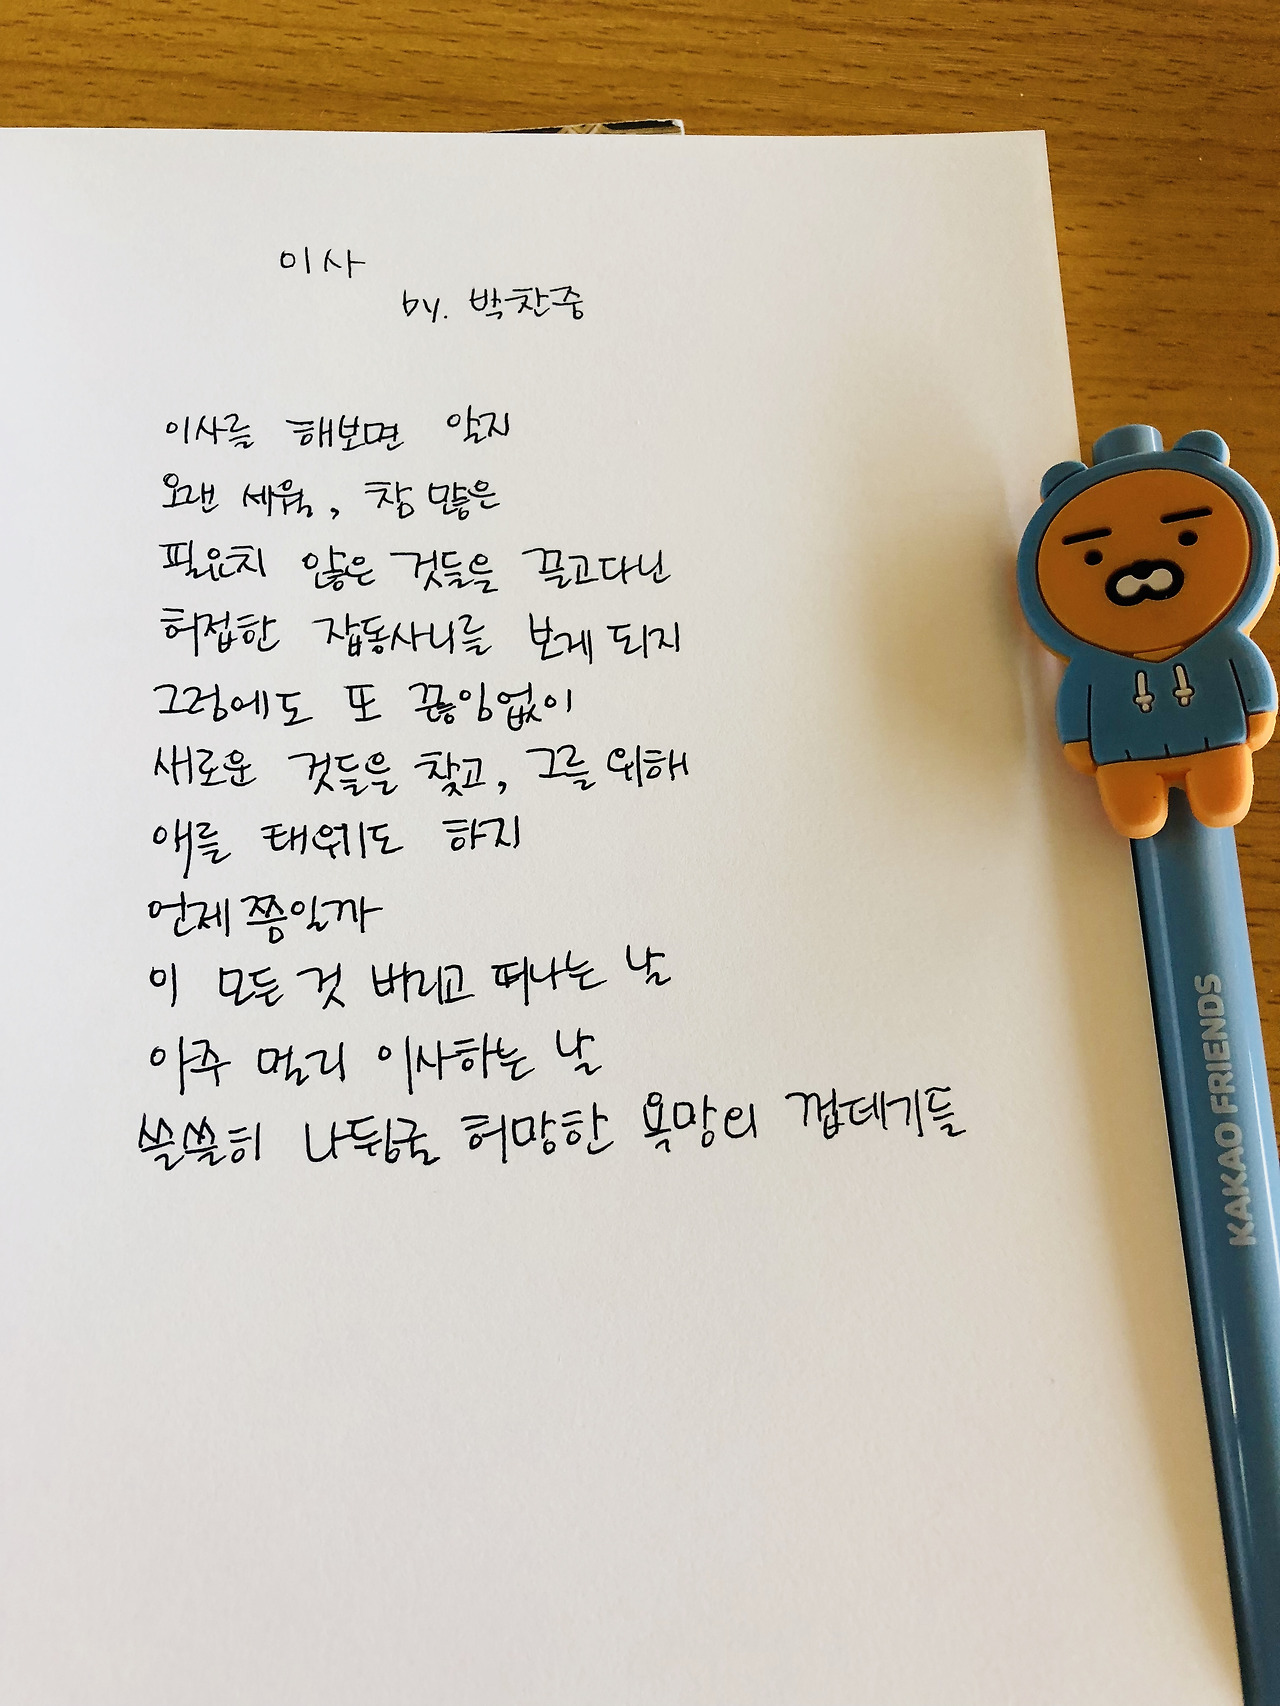 이사
by. 박찬중
이사를 해보면 알지
오랜 세월, 참 많은
필요치 않은 것들을 끌고다닌
허접한 잡동사니를 보게 되지
그럼에도 또 끊임없이
새로운 것들을 찾고, 그를 위해
애를 태우기도 하지
언제쯤일까
이 모든 것 버리고 떠나는 날
아주 멀리 이사하는 날
쓸쓸히 나뒹굴 허망한 욕망의 껍데기들
KAKAO FRIENDS